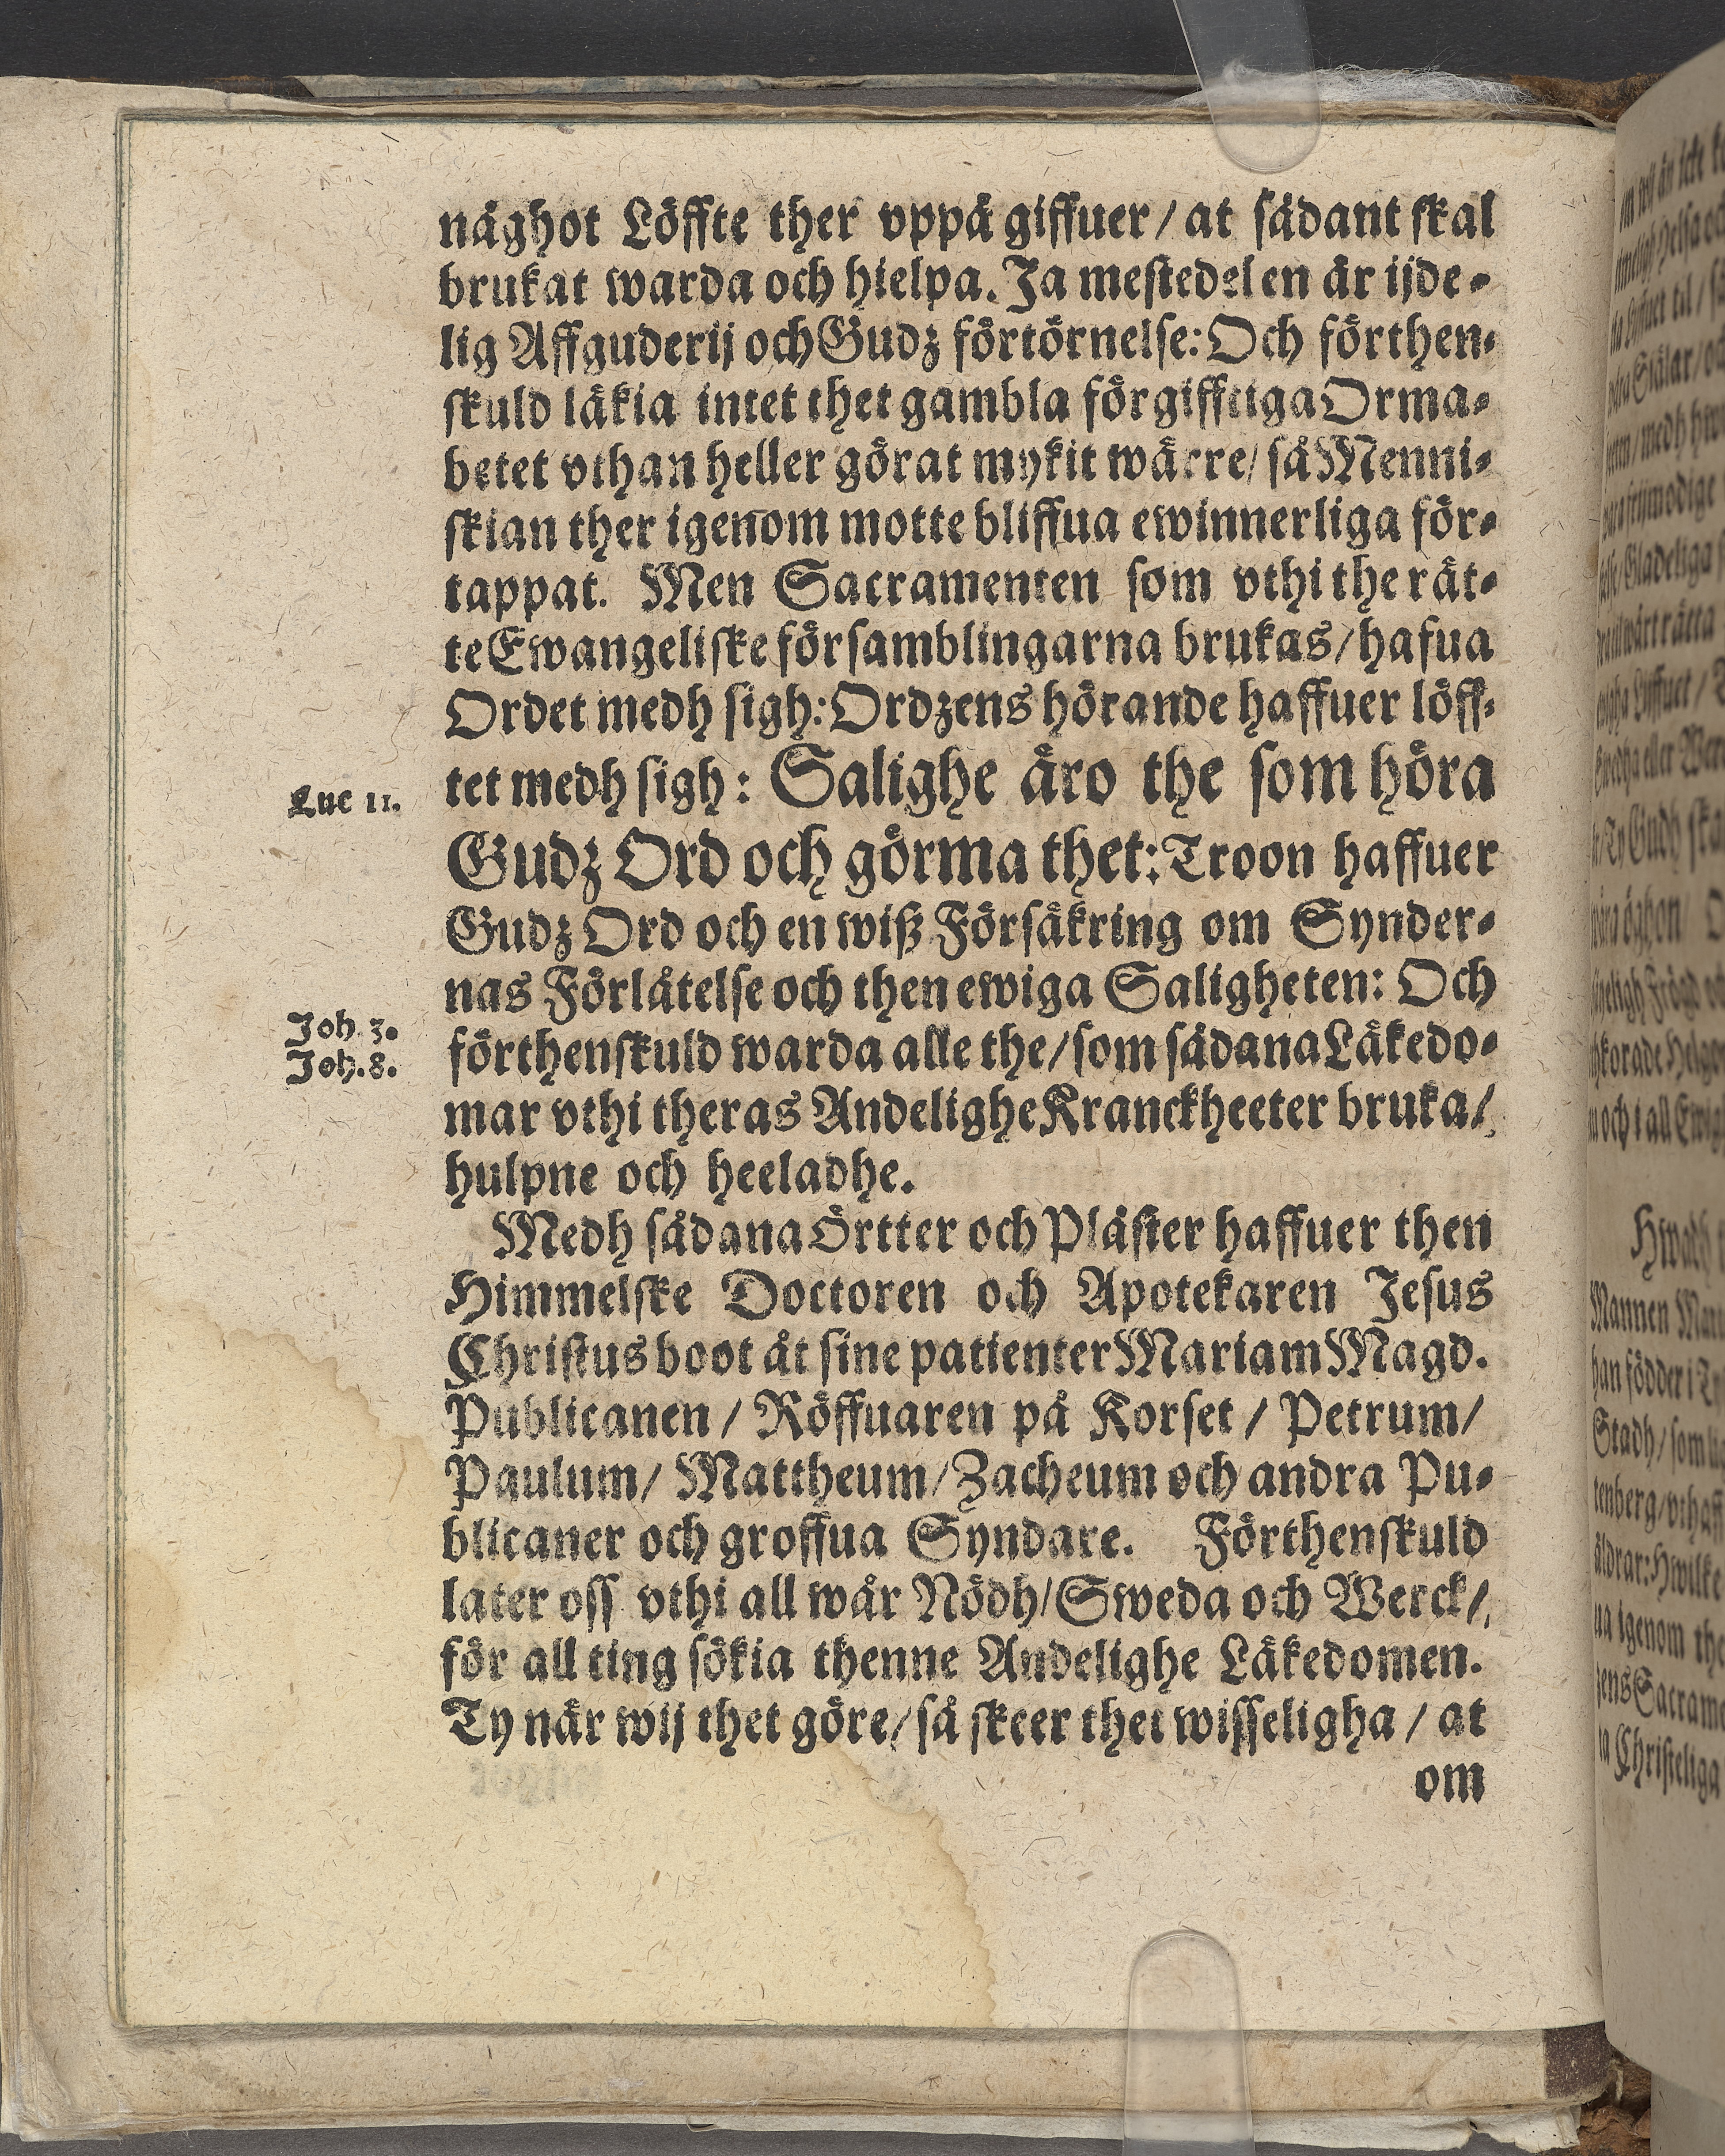 någhot Löffte ther vppå giffuer/ at sådant skal
brukat warda och hielpa. Ja mestedelen är ijde-
lig Affguderij och Gudz förtörnelse: Och förthen-
skuld läkia intet thet gambla förgifftiga Orma-
betet vthan heller görat mykit wärre/ så Menni-
skian ther igenom motte bliffua ewinnerliga för-
tappat. Men Sacramenten som vthi the rät-
te Ewangeliske församblingarna brukas/ hafua
Ordet medh sigh: Ordzens hörande haffuer löff-
Luc 11. tet medh sigh: Salighe äro the som höra
Gudz Ord och görma thet: Troon haffuer
Gudz Ord och en wiß Försäkring om Synder-
nas Förlåtelse och then ewiga Saligheten: Och
Joh 3.
Joh. 8. förthenskuld warda alle the/ som sådana Läkedo-
mar vthi theras Andelighe Kranckheeter bruka/
hulpne och heeladhe.
Medh sådana Örtter och Pläster haffuer then
Himmelske Doctoren och Apotekaren Jesus
Christus boot åt sine patienter Mariam Magd.
Publicanen/ Röffuaren på Korset/ Petrum/
Paulum/ Mattheum/ Zacheum och andra Pu-
blicaner och groffua Syndare. Förthenskuld
later oss vthi all wår Nödh/ Sweda och Werck/
för all ting sökia thenne Andelighe Läkedomen.
Ty när wij thet göre/ så skeer thet wisseligha/ at
om